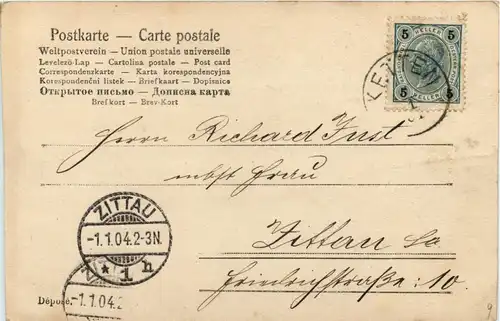 Postkarte – Carte postale
Weltpostverein – Union postale universelle
Levelező-Lap – Cartolina postale – Post card
Correspondenzkarte – Karta korespondencyjna
Korespondenční listek – Briefkaart – Dopisnica
Открытое письмо – Дописна карта
Brefkort – Brev-Kort
5 5
HELLER HELLER
5 5
HELLER
KETTEN
1
Herrn Richard Just
nebst Frau
Zittau Sa
Friedrichstraße 10.
ZITTAU
-1.1.04.2-3N.
* 1 h
-1.1.04.2
Déposé.
9